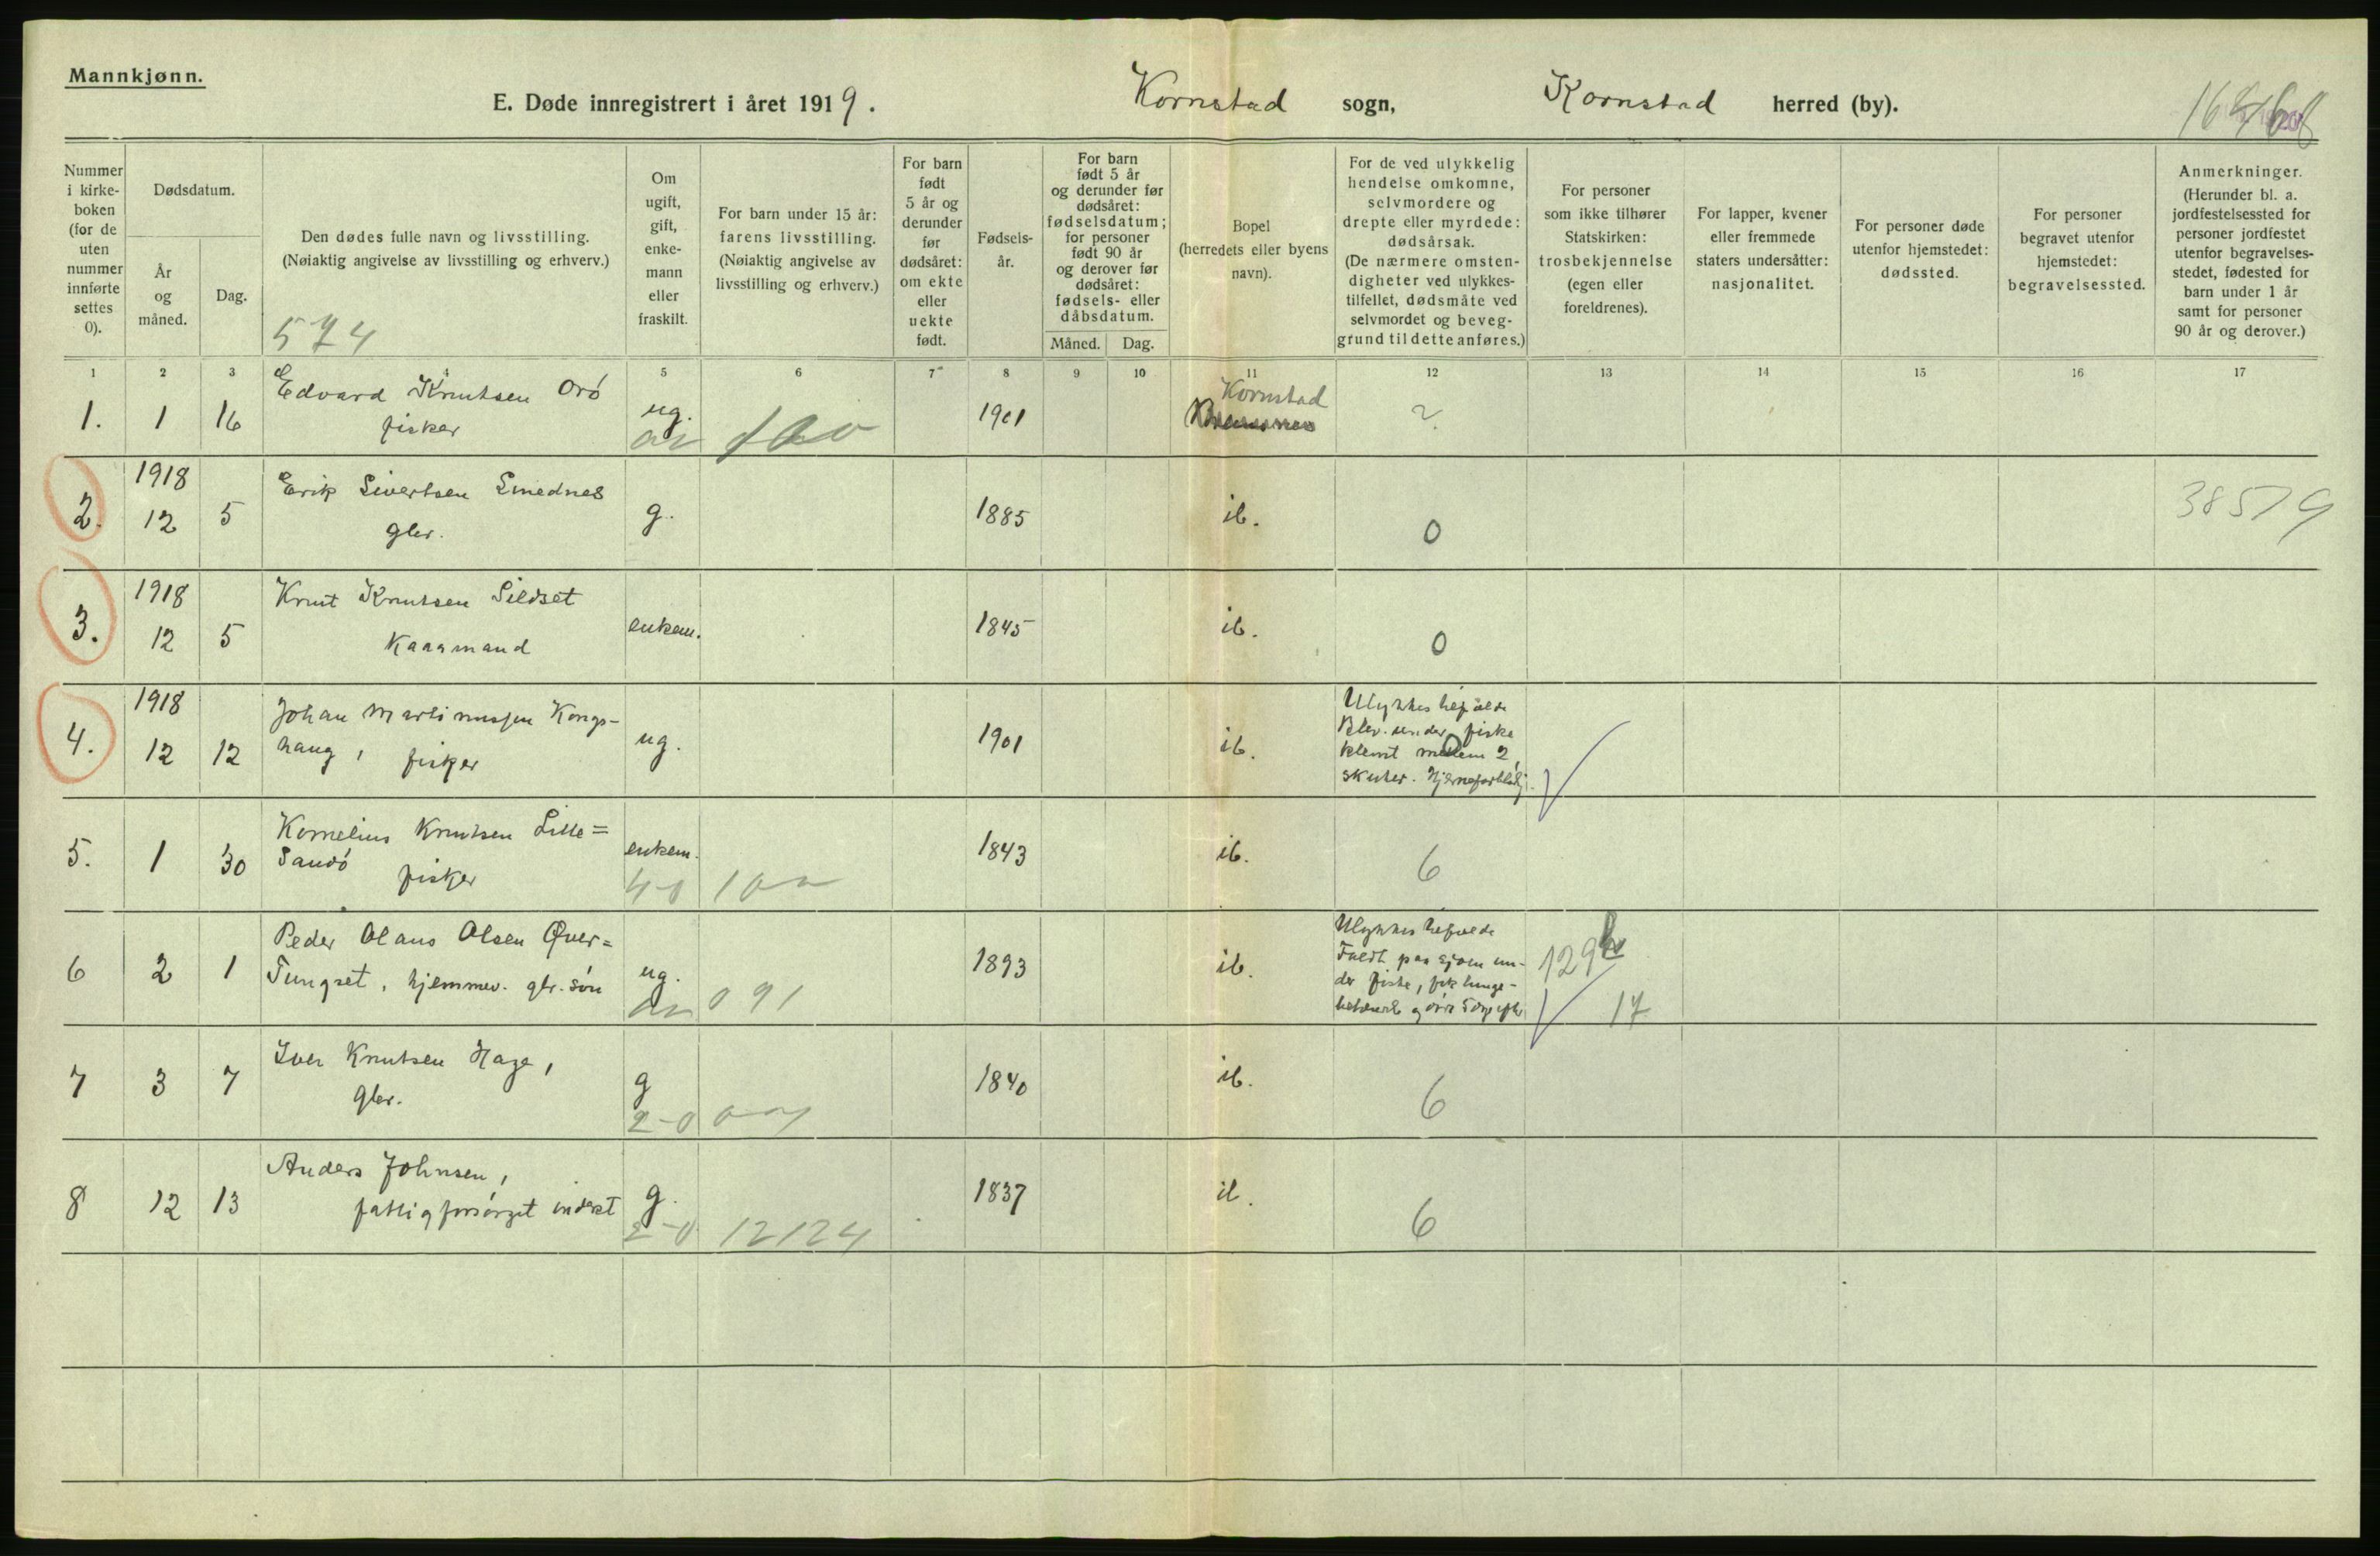 Mannkjønn.
E. Døde innregistrert i året 1919.
Kornstad sogn,
Kornstad herred (by).
Nummer i kirke-boken (for de uten nummer innførte settes 0).
Dødsdatum.
År og måned.
Dag.
Den dødes fulle navn og livsstilling.
(Nøiaktig angivelse av livsstilling og erhverv.)
574
Om ugift, gift, enke-mann eller fraskilt.
For barn under 15 år:
farens livsstilling.
(Nøiaktig angivelse av livsstilling og erhverv.)
For barn født 5 år og derunder før dødsåret: om ekte eller uekte født.
Fødsels-år.
For barn født 5 år og derunder før dødsåret: fødselsdatum; for personer født 90 år og derover før dødsåret: fødsels- eller dåbsdatum.
Måned.
Dag.
Bopel
(herredets eller byens navn).
For de ved ulykkelig hendelse omkomne, selvmordere og drepte eller myrdede: dødsårsak.
(De nærmere omsten-digheter ved ulykkes-tilfellet, dødsmåte ved selvmordet og beveg-grund til dette anføres.)
For personer som ikke tilhører Statskirken: trosbekjennelse (egen eller foreldrenes).
For lapper, kvener eller fremmede staters undersåtter: nasjonalitet.
For personer døde utenfor hjemstedet: dødssted.
For personer begravet utenfor hjemstedet: begravelsessted.
Anmerkninger.
(Herunder bl. a. jordfestelsessted for personer jordfestet utenfor begravelses-stedet, fødested for barn under 1 år samt for personer 90 år og derover.)
1 2 3 4 5 6 7 8 9 10 11 12 13 14 15 16 17
1. 1 16 Edvard Knutsen Orö ug. 1901 Kornstad
fisker
1918
2. 12 5 Erik Sivertsen Smednes g. 1885 ib. 0 38519
gbr.
1918
3. 12 5 Knut Knutsen Sildset enkem. 1845 ib. 0
Kaarmand
1918
4. 12 12 Johan Martinussen Kongs-
haug, fisker ug. 1901 ib.
Blev under fiske
klemt mellem 2
skuter.
5. 1 30 Kornelius Knutsen Lille=
Sandö fisker enkem. 1843 ib. 6
4-0
6 2 1 Peder Olaus Olsen Øver=
Tungset, hjemmev. gbr. sön ug. 1893 ib.
091
129
17
Faldt paa sjøen un-
der fiske, fik lunge-
7 3 7 Iver Knutsen Hage, g 1840 ib. 6
Gbr.
2-0
8 12 13 Anders Johnsen, g. 1837 ib. 6
fattigforsörget inderst
2-0 12124